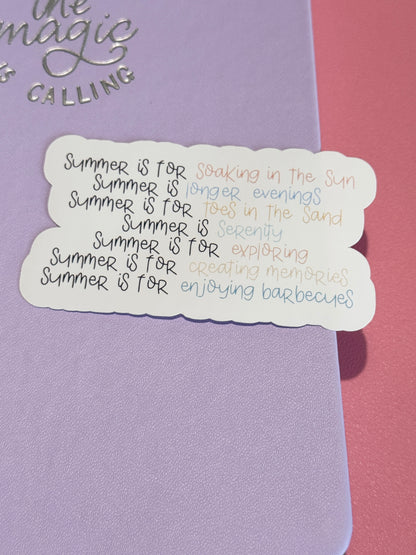 the
magic
IS CALLING
Summer is for Soaking in the Sun
Summer is longer evenings
Summer is for toes in the Sand
Summer is Serenity
Summer is for exploring
Summer is for creating memories
Summer is for enjoying barbecues